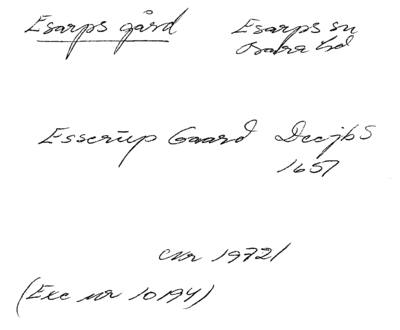 Esarps gård
Esarps sn
Bara hd
Esserup Gaard DecjbS
1657
cnr 19721
(Exc nr 10194)